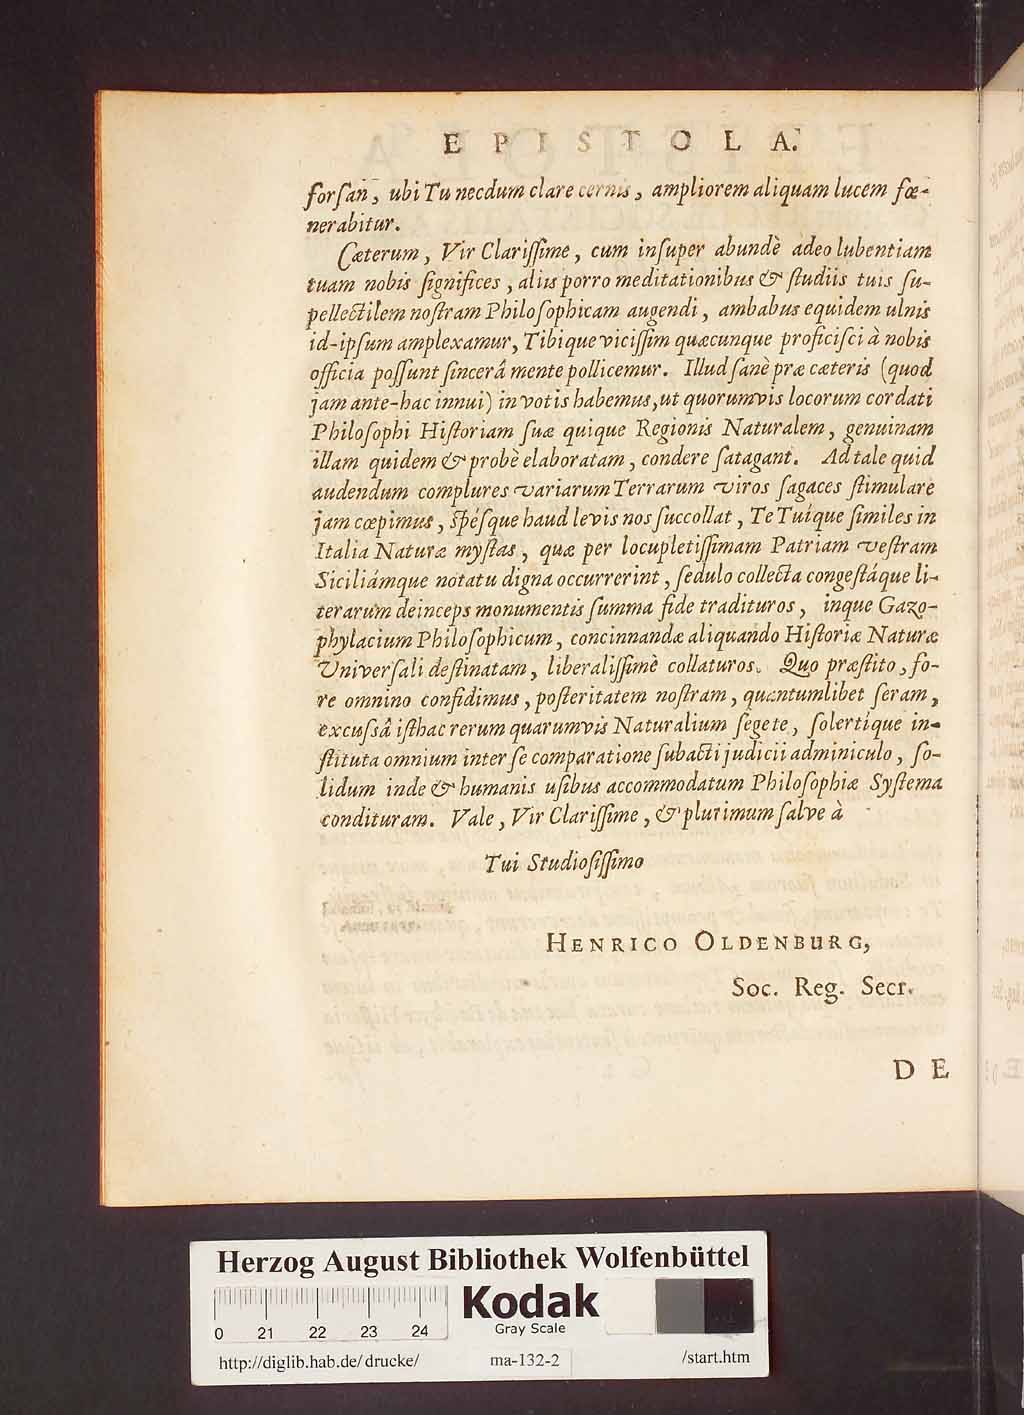 EPISTOLA.
forſan, ubi Tu necdum clare cernis, ampliorem aliquam lucem fœ-
nerabitur.
Cæterum, Vir Clariſſime, cum inſuper abundè adeo lubentiam
tuam nobis ſignifices, aliis porro meditationibus & ſtudiis tuis ſu-
pellectilem noſtram Philoſophicam augendi, ambabus equidem ulnis
id-ipſum amplexamur, Tibique viciſſim quæcunque proficiſci à nobis
officia poſſunt ſincerâ mente pollicemur. Illud ſanè præ cæteris (quod
jam ante-hac innui) in votis habemus, ut quorumvis locorum cordati
Philoſophi Hiſtoriam ſuæ quique Regionis Naturalem, genuinam
illam quidem & probè elaboratam, condere ſatagant. Ad tale quid
audendum complures variarum Terrarum viros ſagaces ſtimulare
jam cœpimus, ſpéſque haud levis nos ſuccollat, Te Tuíque ſimiles in
Italia Naturæ myſtas, quæ per locupletiſſimam Patriam veſtram
Siciliámque notatu digna occurrerint, ſedulo collecta congeſtáque li-
terarum deinceps monumentis ſumma fide tradituros, inque Gazo-
phylacium Philoſophicum, concinnandæ aliquando Hiſtoriæ Naturæ
Univerſali deſtinatam, liberaliſſimè collaturos. Quo præſtito, fo-
re omnino confidimus, poſteritatem noſtram, quantumlibet ſeram,
excuſſâ iſthac rerum quarumvis Naturalium ſegete, ſolertíque in-
ſtituta omnium inter ſe comparatione ſubacti judicii adminiculo, ſo-
lidum inde & humanis uſibus accommodatum Philoſophiæ Syſtema
condituram. Vale, Vir Clariſſime, & plurimum ſalve à
Tui Studioſiſſimo
HENRICO OLDENBURG,
Soc. Reg. Secr.
DE
Herzog August Bibliothek Wolfenbüttel
Kodak
Gray Scale
0 21 22 23 24
http://diglib.hab.de/drucke/ ma-132-2 /start.htm